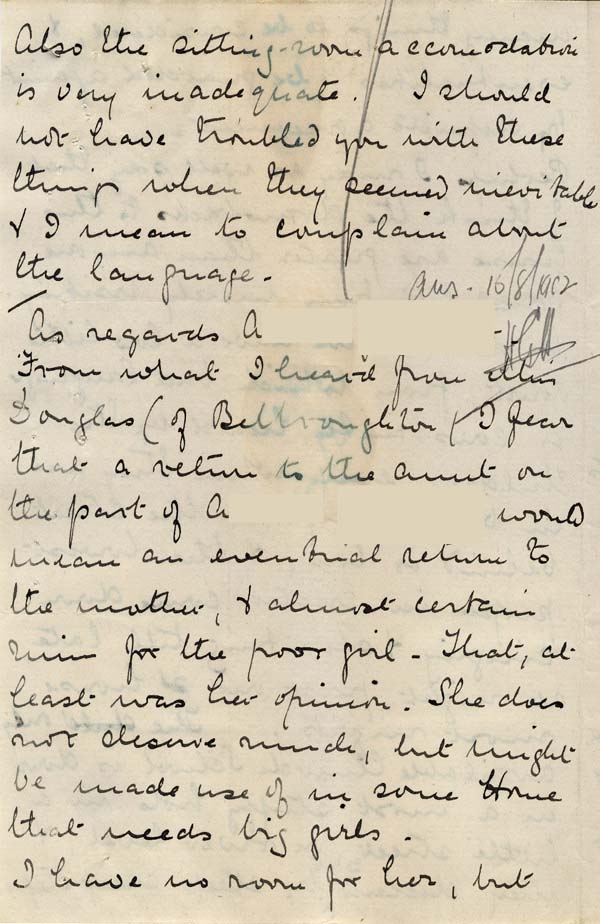 Also the sitting-room accomodation
is very inadequate. I should
not have troubled you with these
things when they seemed inevitable
& I mean to complain about
the language.
ans. 16/8/1912
As regards A
From what I heard from Miss
Douglas (of Bellroughton) I fear
that a return to the aunt on
the part of A would
mean an eventual return to
the mother, & almost certain
ruin for the poor girl - That, at
least was her opinion. She does
not deserve much, but might
be made use of in some Home
that needs big girls.
I have no room for her, but